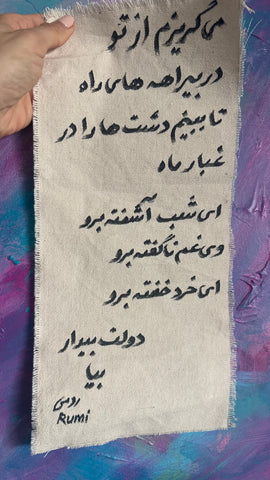 می گریزم از تو
در بیراهه های راه
تا ببینم دشت ها را در
غبار ماه
ای شب آشفته برو
وی غم ناگفته برو
ای خرد خفته برو
دولت بیدار
بیا
رومی
Rumi